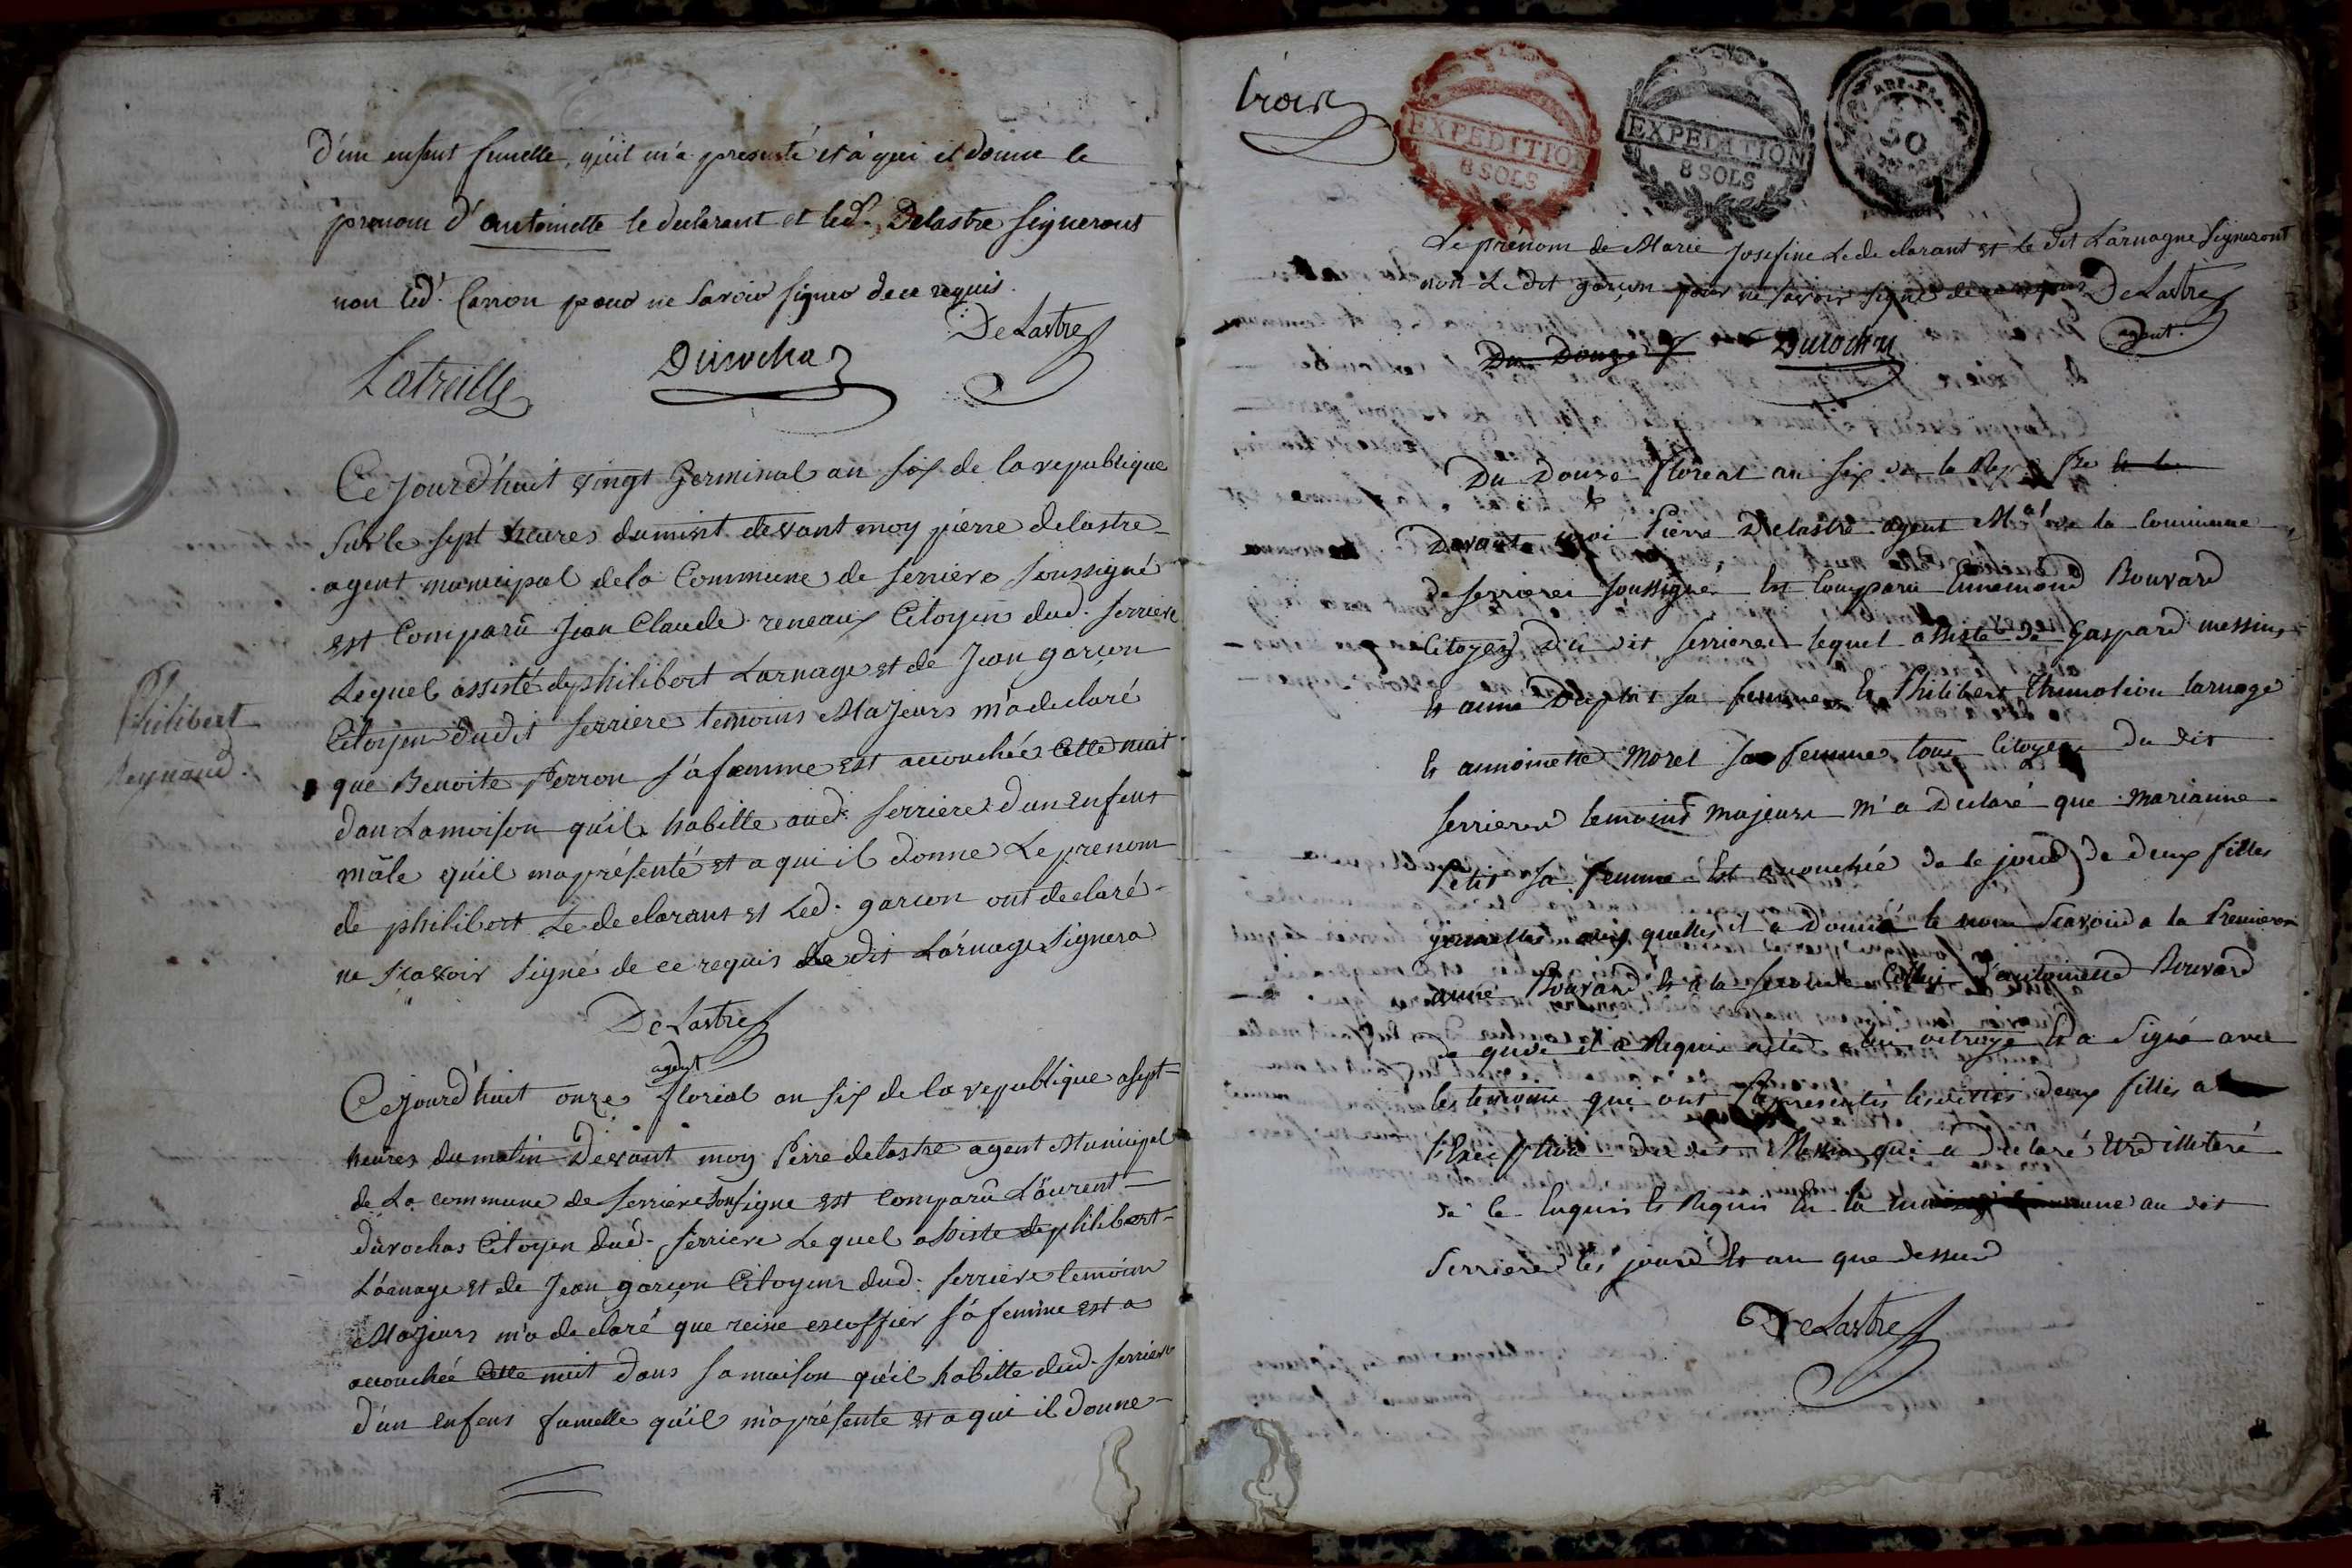 d'un enfant femelle, qu'il m'a presenté et à qui il donne le
prenom d'antoinette le declarant et led. Delastre signerons
non led. Carron pour ne savoir signer de ce requis.
DeLastre
Latreille
Durochas
Ce jourd'huit vingt Germinal an six de la republique
sur le sept heures du matin devant moy pierre delastre
agent municipal de la Commune de serriere soussigné
est Comparû Jean Claude reneaux Citoyen dud. serriere
Lequel assisté de philibert Larnage et de Jean garcon
Citoyen dudit serriere temoins Majeurs m'a declaré
Philibert
Reynaud.
que Benoite Perron sa femme est accouchée cette nuit
dan La maison qu'il habitte aud. serriere d'un enfens
mâle qu'il ma présenté et a qui il donne Le prenom
de philibert Le declarant et Led. garcon ont declaré
ne scavoir signé de ce requis Le dit Lárnage signera
DeLastre
agent
Ce jourd'huit onze florial an six de la republique a sept
heures du matin Devant moy Pierre delastre agent Municipal
de La commune de serriere sousigne est Comparû Laurent
durochas Citoyen dud. serriere Lequel assiste de philibert
Lárnage et de Jean garçon Citoyens dud. serriere temoins
Majeurs m'a declaré que reine escoffier sa femme est a
accouchée cette nuit dans sa maison qu'il habitte dud. serriere
d'un enfens fumelle qu'il m'a présente et a qui il donne
trois
EXPEDITION
8 SOLS
EXPEDITION
8 SOLS
REP. FRA.
50
Le prénom de Marie Josefine Le declarant et Le dit Larnagne signeront
non Le dit garçon pour ne savoir signé de ce requis DeLastre
agent.
Du Douze
Durochas
Du Douze floreal an six de la Rep
Devant moi Pierre Delastre agent M.al de la Commune
de serrieres soussigné est comparu Ennemond Bouvard
Citoyen du dit serrieres lequel assisté de Gaspard messin
et anne sa femme et Philibert larnage
et annoinette Morel sa femme tous Citoyens du dit
serrieres temoins majeurs m'a declaré que marianne
Petit sa femme est acouchée de ce jour de deux filles
jumelles aux quelles il a donné le nom scavoir a la Premiere
anne Bouvard et a la seconde Celluy d'antoinette Bouvard
de quoi il a Requis acte a lui octroyé et a signé avec
les temoins qui ont Representés lesdittes deux filles a
l'exception du dit Messin qui a declaré être illiteré
de ce Enquis et Requis en la maison commune au dit
serrieres les jours et an que dessus
DeLastre